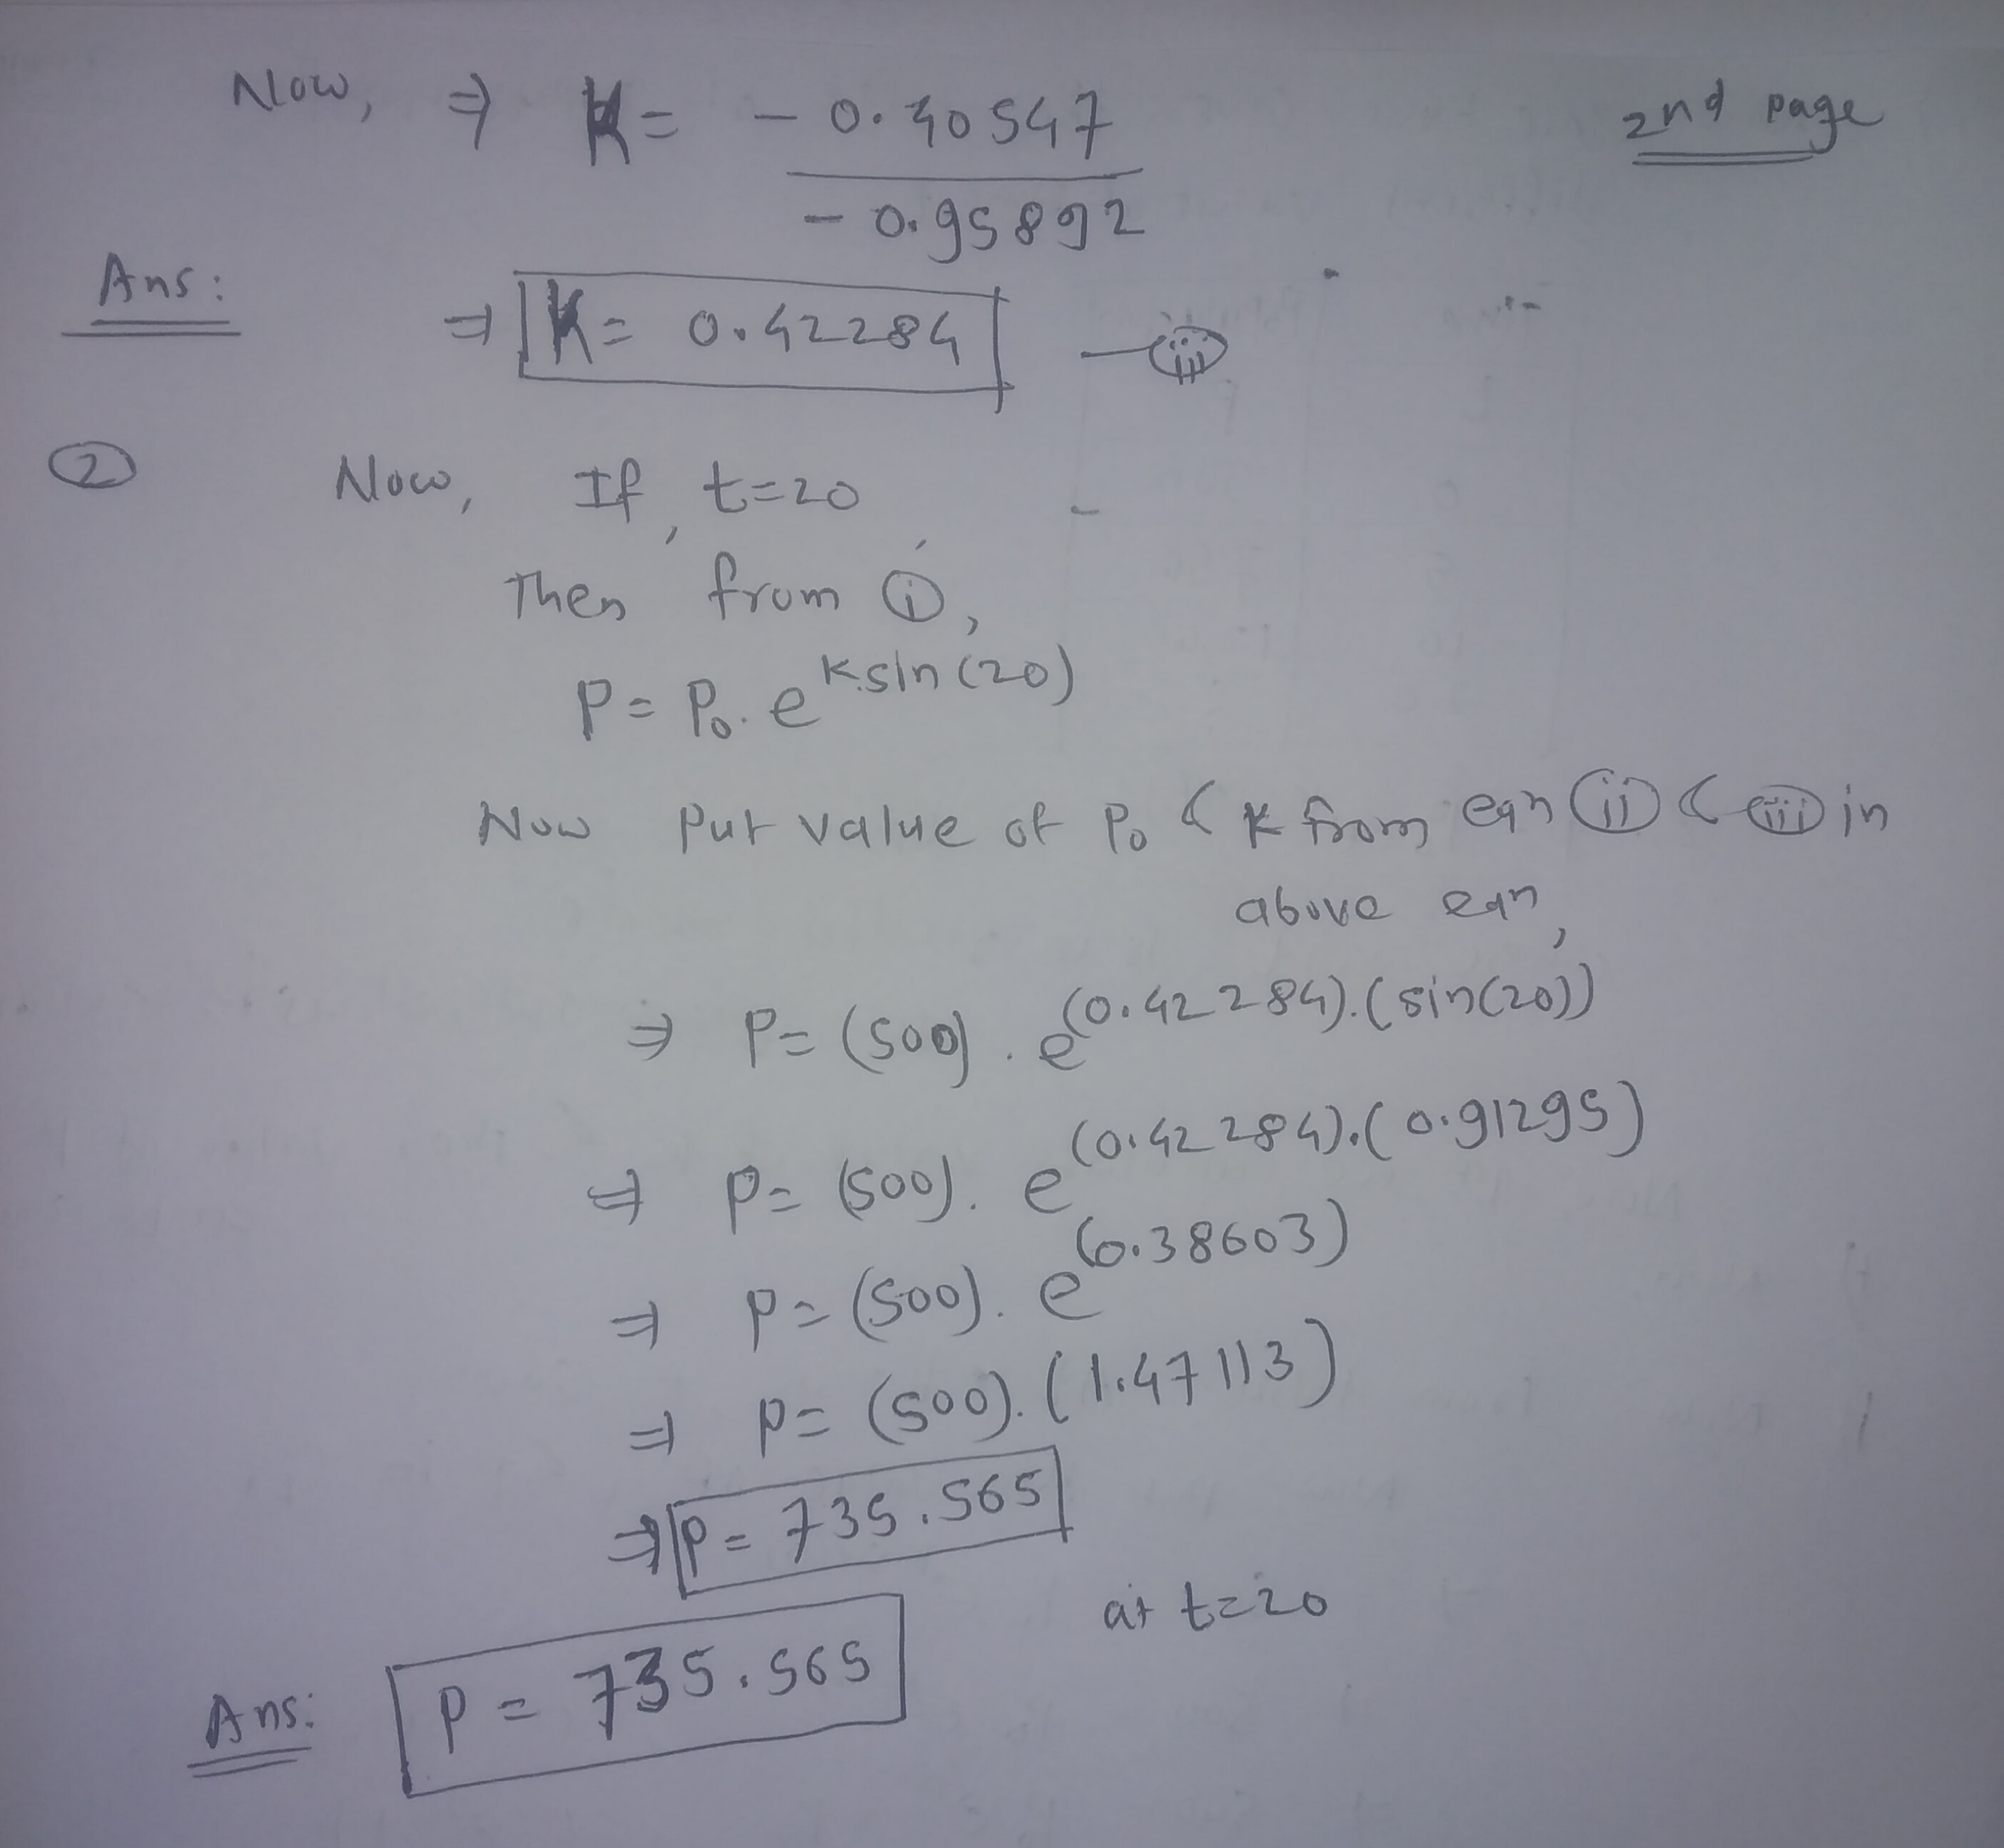 2nd page
Now, ⇒ K = - 0.40547
- 0.95892
Ans:
⇒ K = 0.42284 —(iii)
(2) Now, If, t=20
Then from (i),
P = P₀. e^K.sin(20)
Now put value of P₀ & K from eqn (ii) & (iii) in
above eqn,
⇒ P = (500). e^(0.42284).(sin(20))
⇒ P = (500). e^(0.42284).(0.91295)
⇒ P = (500). e^(0.38603)
⇒ P = (500). (1.47113)
⇒ P = 735.565
at t=20
Ans: P = 735.565